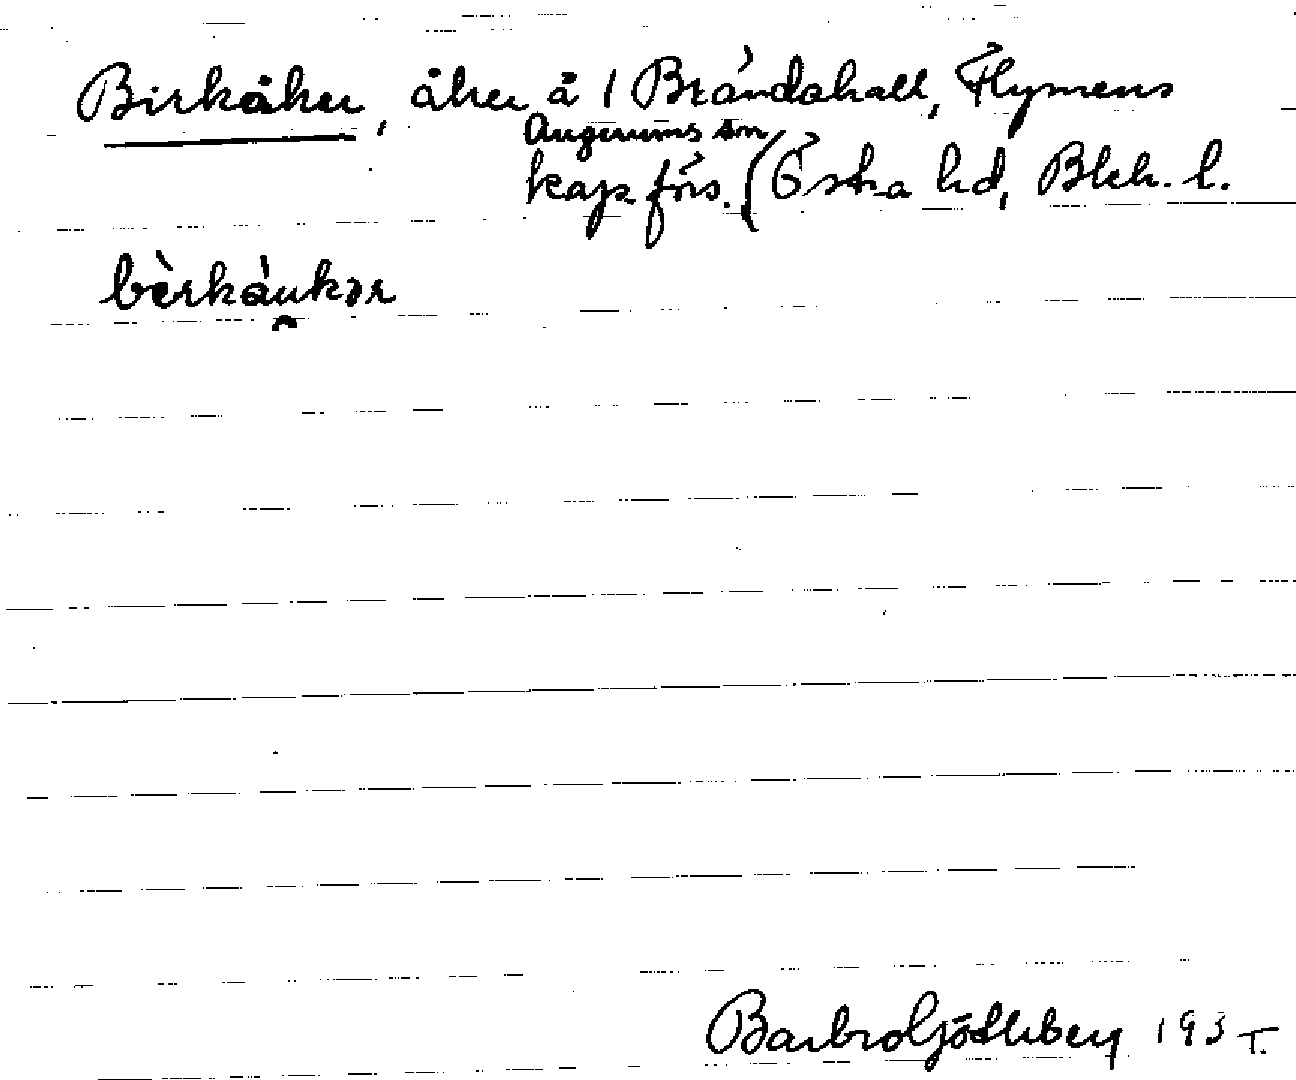 Birkåker, åker å 1 Brändahall, Flymens
Augerums sn
kap. förs. (Östra hd, Blek. l.
bèrkáukər
Barbro Götlberg 193